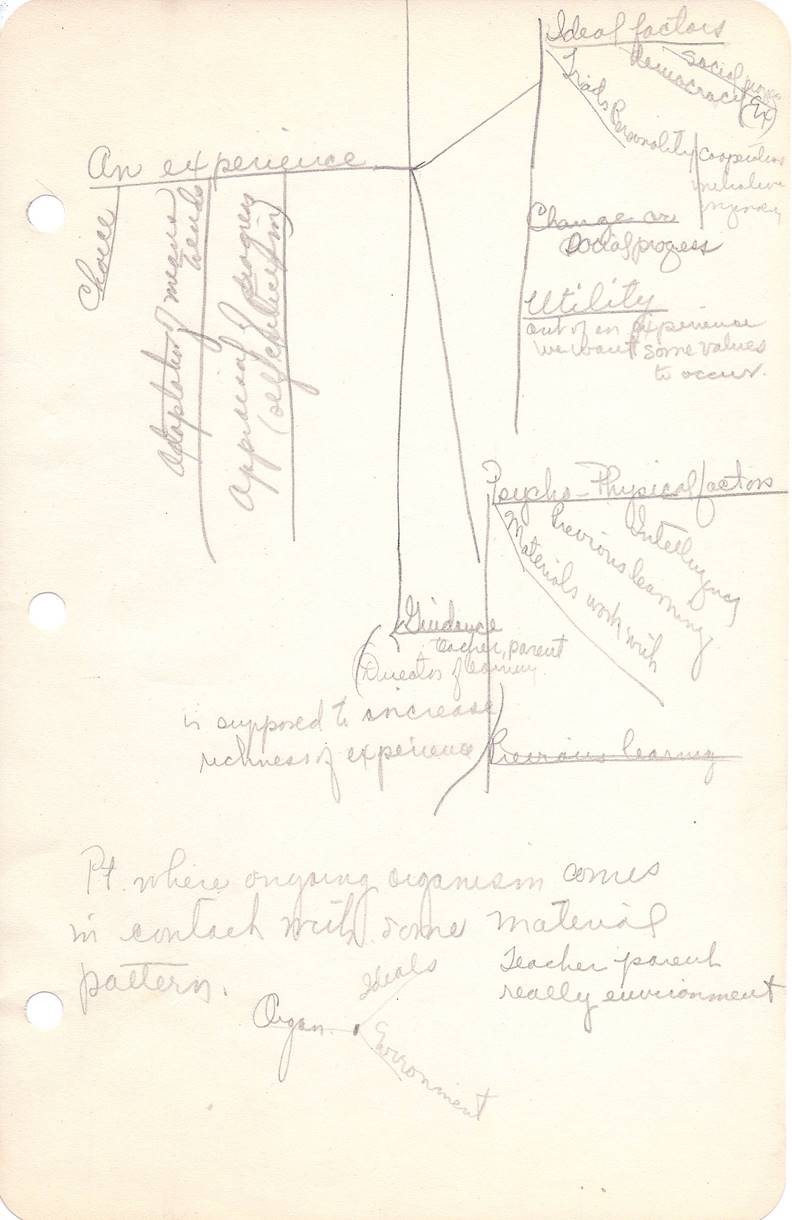 Ideal factors
Social
Democracy
(Ex)
Triads
Personality
cooperation
initiative
An experience
Choice
Adaptation of means
& ends
Appraisal of progress
(self criticizing)
Change or
Social progress
Utility
out of an experience
we want some values
to occur.
Psycho-Physical factors
Intelligency
Previous learning
Materials work with
Guidance
teacher, parent
(Director of learning
is supposed to increase
richness of experience
Previous learning
Pt. where ongoing organism comes
in contact with some material
pattern.
Teacher parent
really environment
Ideals
Organ.
Environment